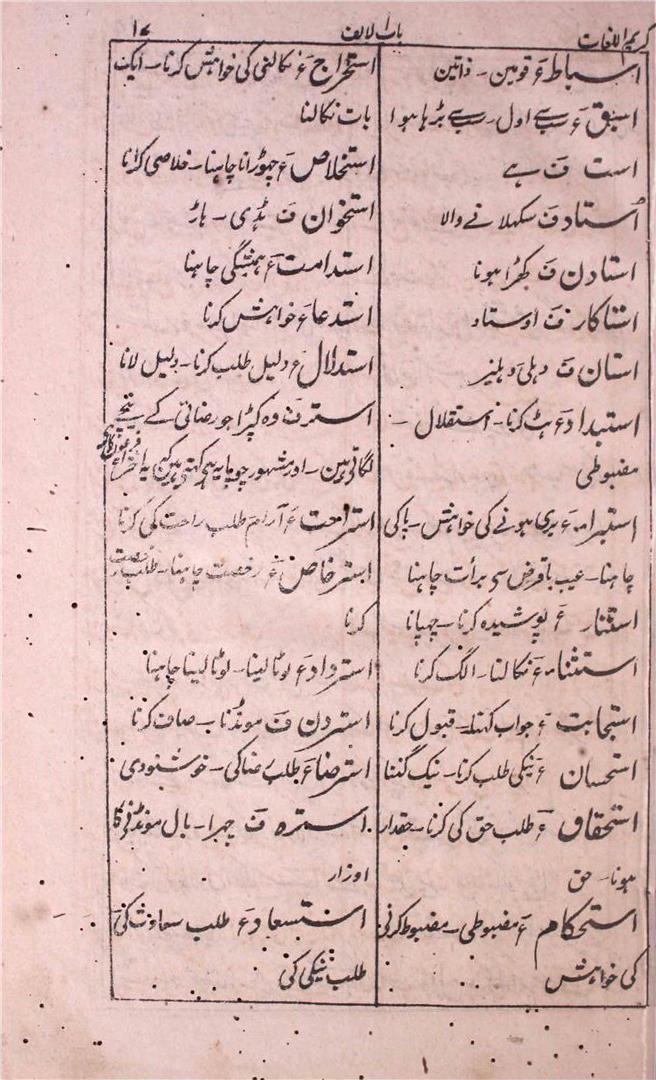 کریم اللغات باب الالف ۱۷
اسباط ع قومین ۔ ذاتین
اسبق ع سب سے اول ۔ سب سے بڑہا ہوا
است ف ہے
استاد ف سکھلانے والا
استادن ف کھڑا ہونا
استاکار ف اوستاد
استان ف دہلی دہلیز
استبداد ع ہٹ کرنا ۔ استقلال ۔
مضبوطی
استبراء ع بری ہونے کی خواہش ۔ پاکی
چاہنا ۔ عیب یا قرض سی برأت چاہنا
استتار ع پوشیدہ کرنا ۔ چھپانا
استثناء ع نکالنا ۔ الگ کرنا
استجابت ع جواب کہنا ۔ قبول کرنا
استحسان ع نیکی طلب کرنا ۔ نیک گننا
استحقاق ع طلب حق کی کرنا ۔ حقدار
ہونا ۔ حق
استحکام ع مضبوطی ۔ مضبوط کرنی
کی خواہش
استخراج ع نکالنی کی خواہش کرنا ۔ ایک
بات نکالنا
استخلاص ع چھوڑانا چاہنا ۔ خلاصی کرانا
استخوان ف ہڈی ۔ ہاڑ
استدامت ع ہمیشگی چاہنا
استدعا ع خواہش کرنا
استدلال ع دلیل طلب کرنا ۔ دلیل لانا
استر ف وہ کپڑا جو رضائی کے نیچے
لگاتی ہین ۔ اور مشہور چوپایہ ہی کہتی ہین کہ یہ اختراع
استراحت ع آرام طلب راحت کی کرنا
استرخاص ع رخصت چاہنا ۔ طلب رخصت
کرنا
استرداد ع لوٹا لینا ۔ لوٹا لینا چاہنا
استردن ف مونڈنا ۔ صاف کرنا
استرضا ع طلب رضا کی ۔ خوشنودی
استرہ ف چہرا ۔ بال مونڈنی کا
اوزار
استسعاد ع طلب سعادت کی
طلب نیکی کی